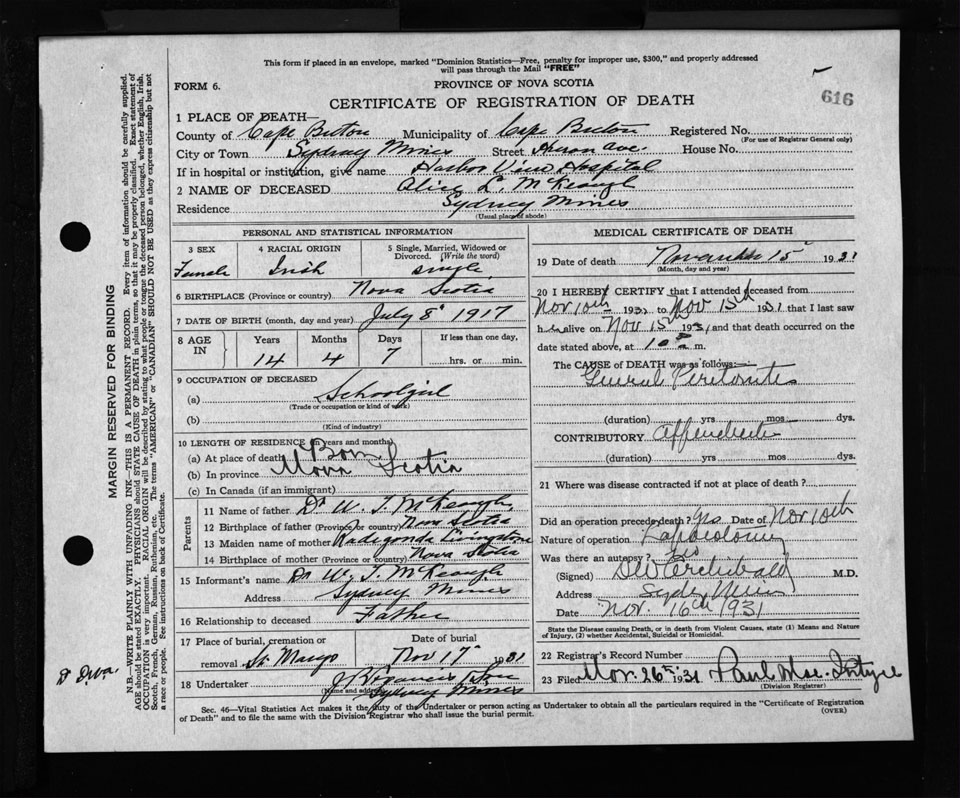 This form if placed in an envelope, marked "Dominion Statistics—Free, penalty for improper use, $300," and properly addressed
will pass through the Mail "FREE"
FORM 6.
PROVINCE OF NOVA SCOTIA
616
CERTIFICATE OF REGISTRATION OF DEATH
1 PLACE OF DEATH—
County of Cape Breton Municipality of Cape Breton Registered No.
(For use of Registrar General only)
City or Town Sydney Mines Street Ave. House No.
If in hospital or institution, give name Harbor View Hospital
2 NAME OF DECEASED Alice L. McKeough
Residence Sydney Mines
(Usual place of abode)
PERSONAL AND STATISTICAL INFORMATION
3 SEX 4 RACIAL ORIGIN 5 Single, Married, Widowed or Divorced. (Write the word)
Female Irish single
6 BIRTHPLACE (Province or country) Nova Scotia
7 DATE OF BIRTH (month, day and year) July 8 1917
8 AGE IN Years Months Days If less than one day,
14 4 7 hrs. or min.
9 OCCUPATION OF DECEASED
(a) Schoolgirl
(Trade or occupation or kind of work)
(b)
(Kind of industry)
10 LENGTH OF RESIDENCE (in years and months)
(a) At place of death Born
(b) In province Nova Scotia
(c) In Canada (if an immigrant)
Parents
11 Name of father Dr W. T. McKeough
12 Birthplace of father (Province or country) Nova Scotia
13 Maiden name of mother Radegonda Livingstone
14 Birthplace of mother (Province or country) Nova Scotia
15 Informant's name Dr W. T. McKeough
Address Sydney Mines
16 Relationship to deceased Father
17 Place of burial, cremation or removal Date of burial
St. Marys Nov 17 1931
18 Undertaker
(Name and address)
Sydney Mines
MEDICAL CERTIFICATE OF DEATH
19 Date of death November 15 1931
(Month, day and year)
20 I HEREBY CERTIFY that I attended deceased from
Nov 10th 1931 to Nov 15th 1931 that I last saw
her alive on Nov 15 1931 and that death occurred on the
date stated above, at 10 m.
The CAUSE OF DEATH was as follows:
General Peritonitis
(duration) yrs mos dys.
CONTRIBUTORY Appendicitis
(duration) yrs. mos. dys.
21 Where was disease contracted if not at place of death?
Did an operation precede death? Yes Date of Nov 10th
Nature of operation
Was there an autopsy?
(Signed) DW Archibald M.D.
Address Sydney Mines
Date Nov. 16th 1931
State the Disease causing Death, or in death from Violent Causes, state (1) Means and Nature of Injury, (2) whether Accidental, Suicidal or Homicidal.
22 Registrar's Record Number
23 Filed Nov. 26th 1931 Paul MacIntyre
(Division Registrar)
Sec. 46—Vital Statistics Act makes it the duty of the Undertaker or person acting as Undertaker to obtain all the particulars required in the "Certificate of Registration
of Death" and to file the same with the Division Registrar who shall issue the burial permit.
(OVER)
MARGIN RESERVED FOR BINDING
N.B.—WRITE PLAINLY WITH UNFADING INK—THIS IS A PERMANENT RECORD. Every item of information should be carefully supplied.
AGE should be stated EXACTLY. PHYSICIANS should STATE CAUSE OF DEATH in plain terms, so that it may be properly classified. Exact statement of
OCCUPATION is very important. RACIAL ORIGIN will be described by stating to what people or tongue the deceased person belonged, whether English, Irish,
Scotch, French, German, Russian, Ruthenian, etc. The terms "AMERICAN" or "CANADIAN" SHOULD NOT BE USED as they express citizenship but not
a race or people. See instructions on back of Certificate.